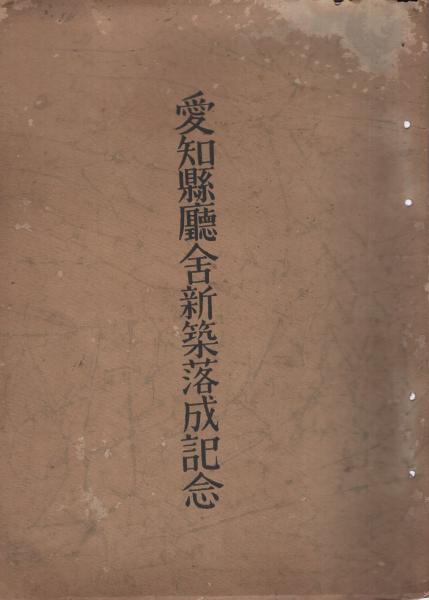 愛知縣廳舍新築落成記念